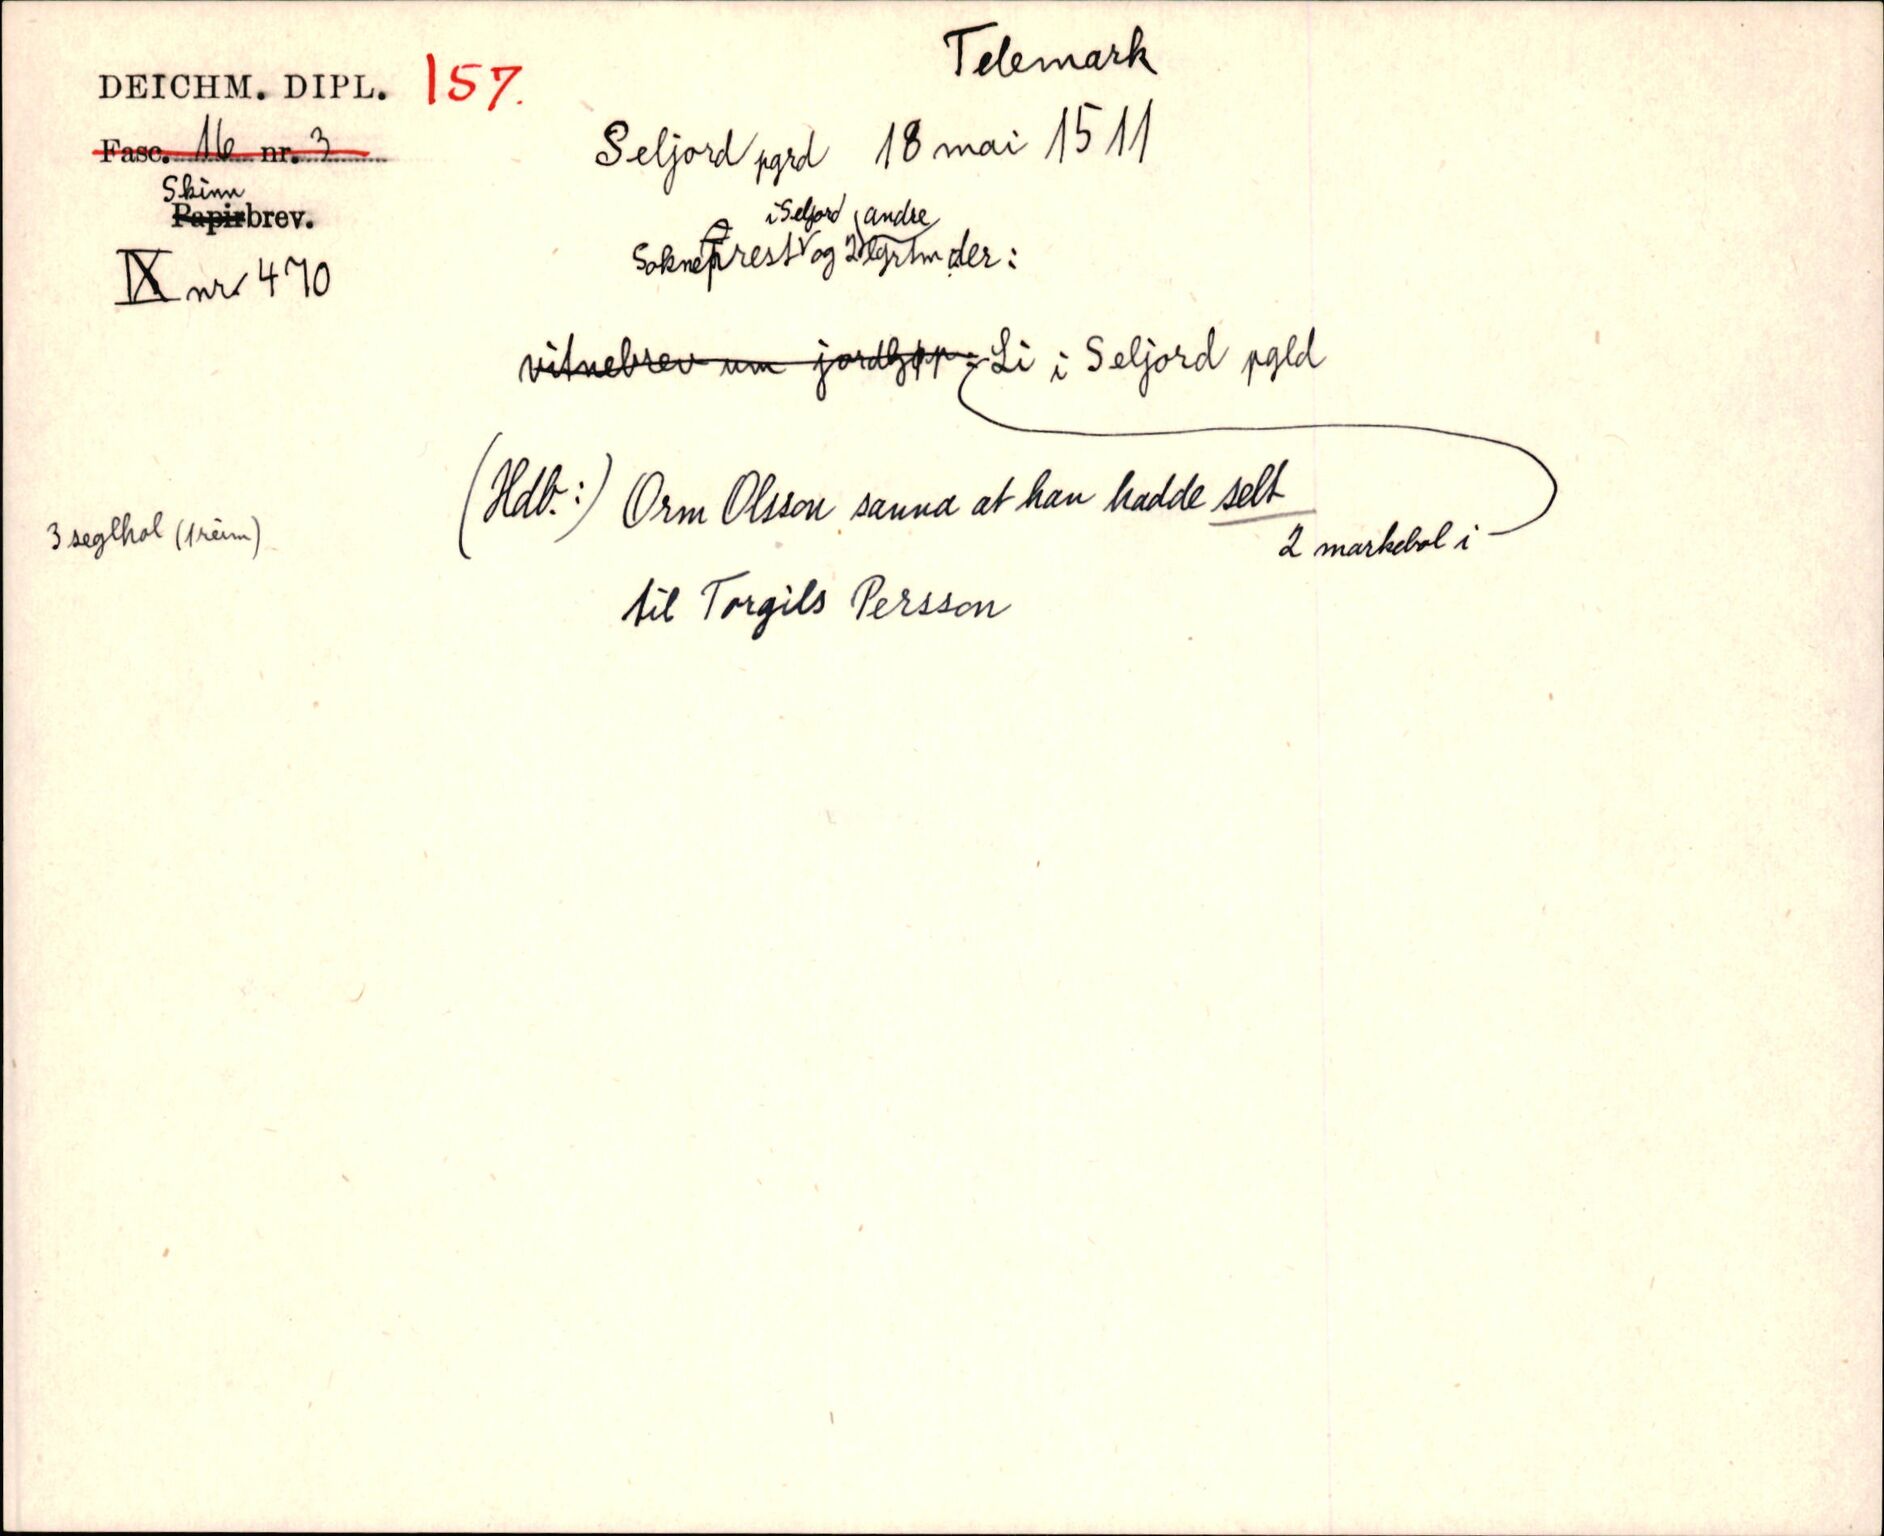 Telemark
DEICHM. DIPL. 157.
Fasc. 16 nr. 3
Seljord pgrd 18 mai 1511
Skinn
Papirbrev.
i Seljord andre
Sokneprest og 2 lgrtm der:
IX nr 470
vitnebrev um jordkjøp: Li i Seljord pgld
(Hdb.:) Orm Olsson sanna at han hadde selt
3 seglhol (1 reim)
2 markebol i
til Torgils Persson